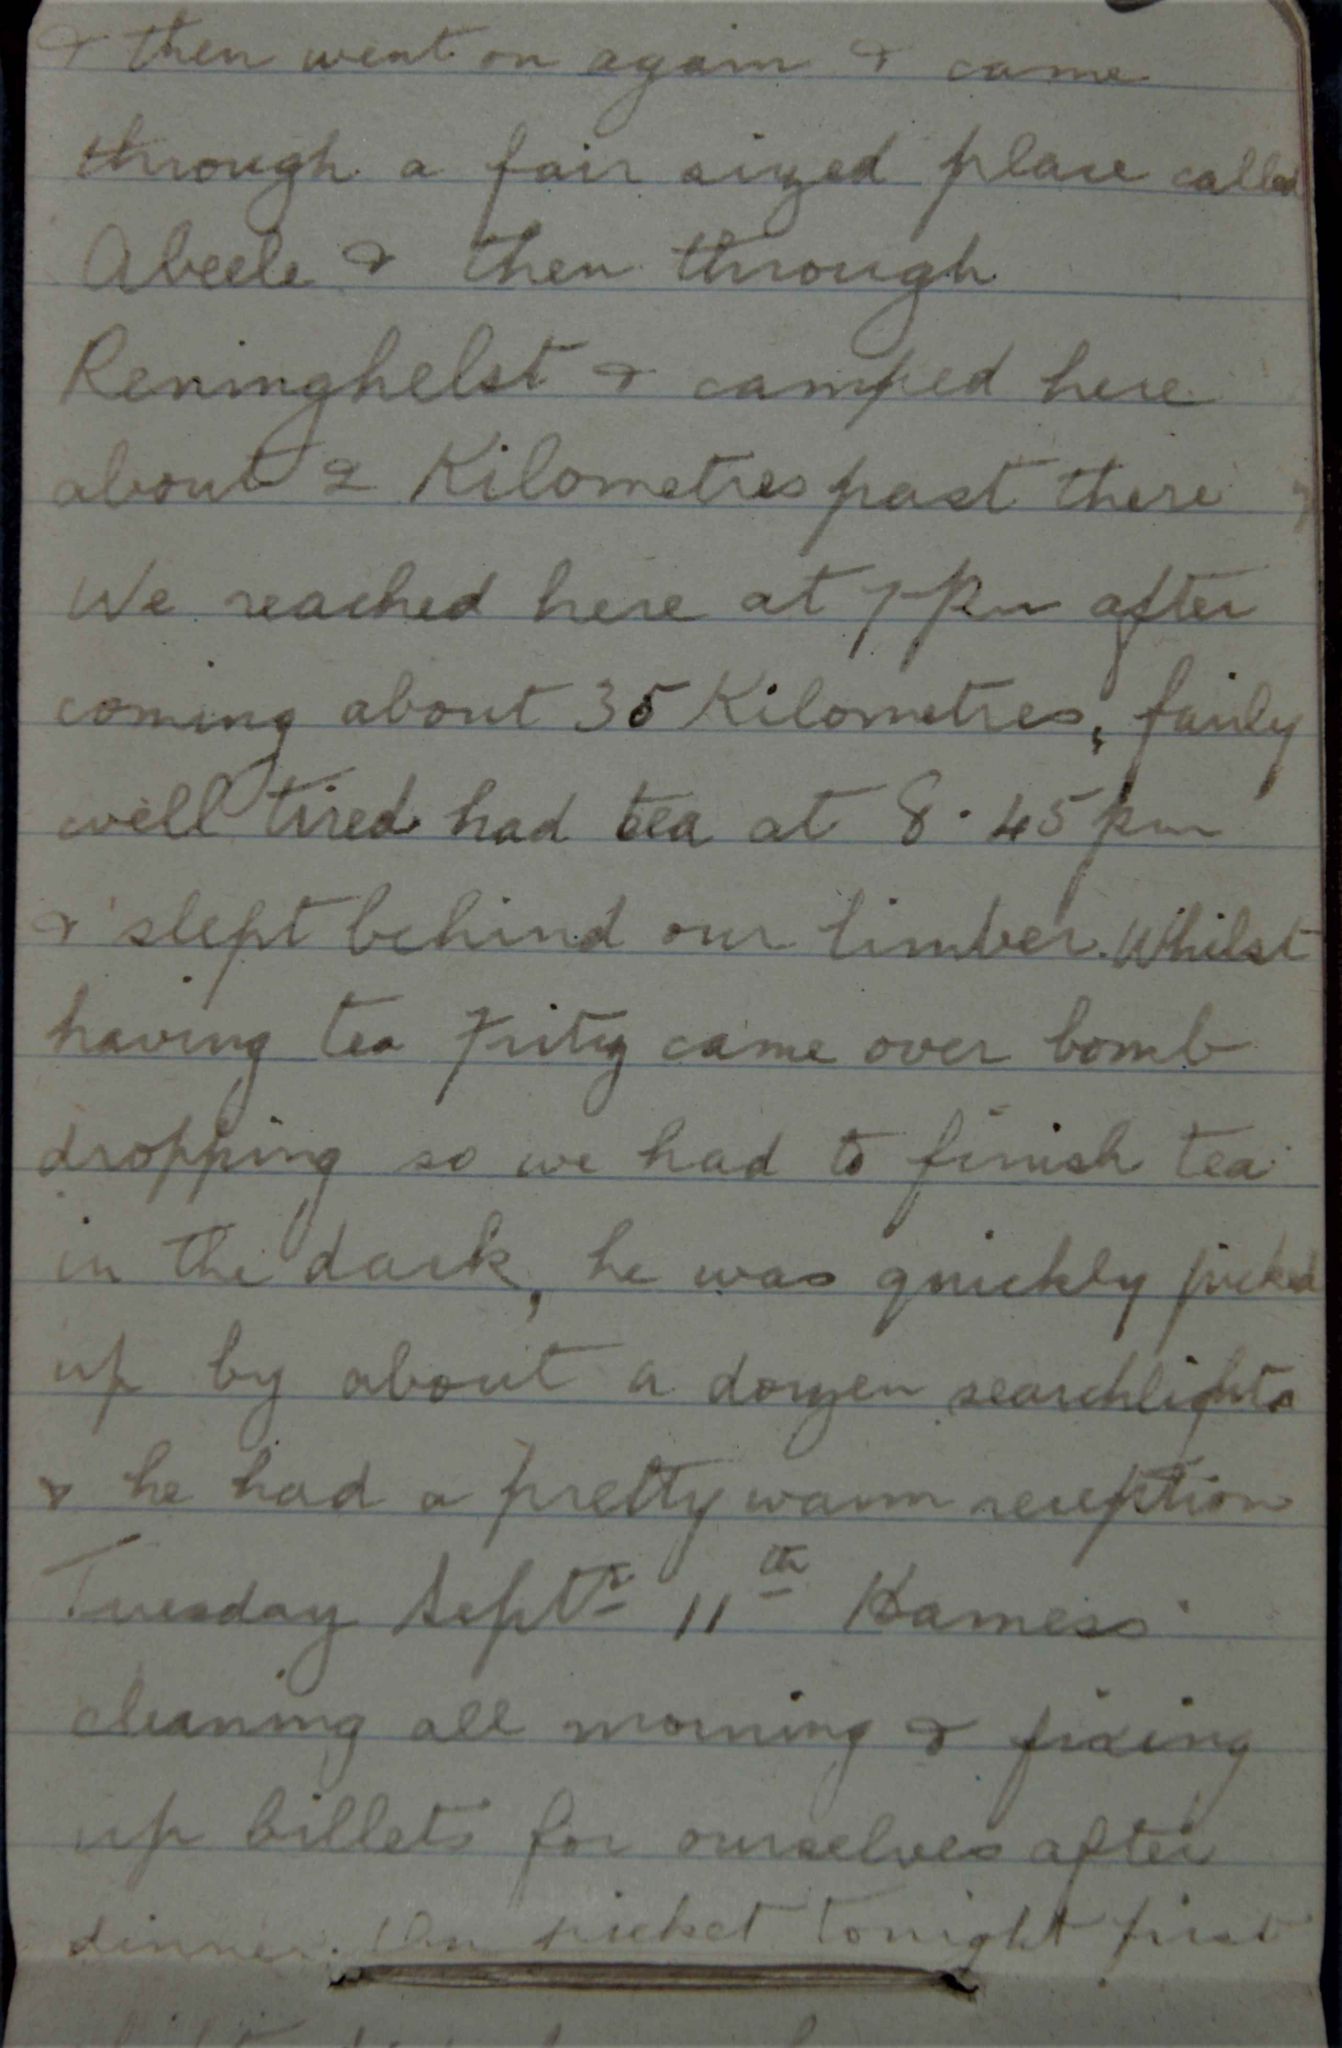 & then went on again & came
through a fair sized place called
Abeele & then through
Reninghelst & camped here
about 2 Kilometres past there
We reached here at 7 Pm after
coming about 35 Kilometres, fairly
well tired had tea at 8.45 pm
& slept behind our limber. Whilst
having tea Fritz came over bomb
dropping so we had to finish tea
in the dark, he was quickly picked
up by about a dozen searchlights
& he had a pretty warm reception
Tuesday Septr 11th Harness
cleaning all morning & fixing
up billets for ourselves after
dinner. On picket tonight first